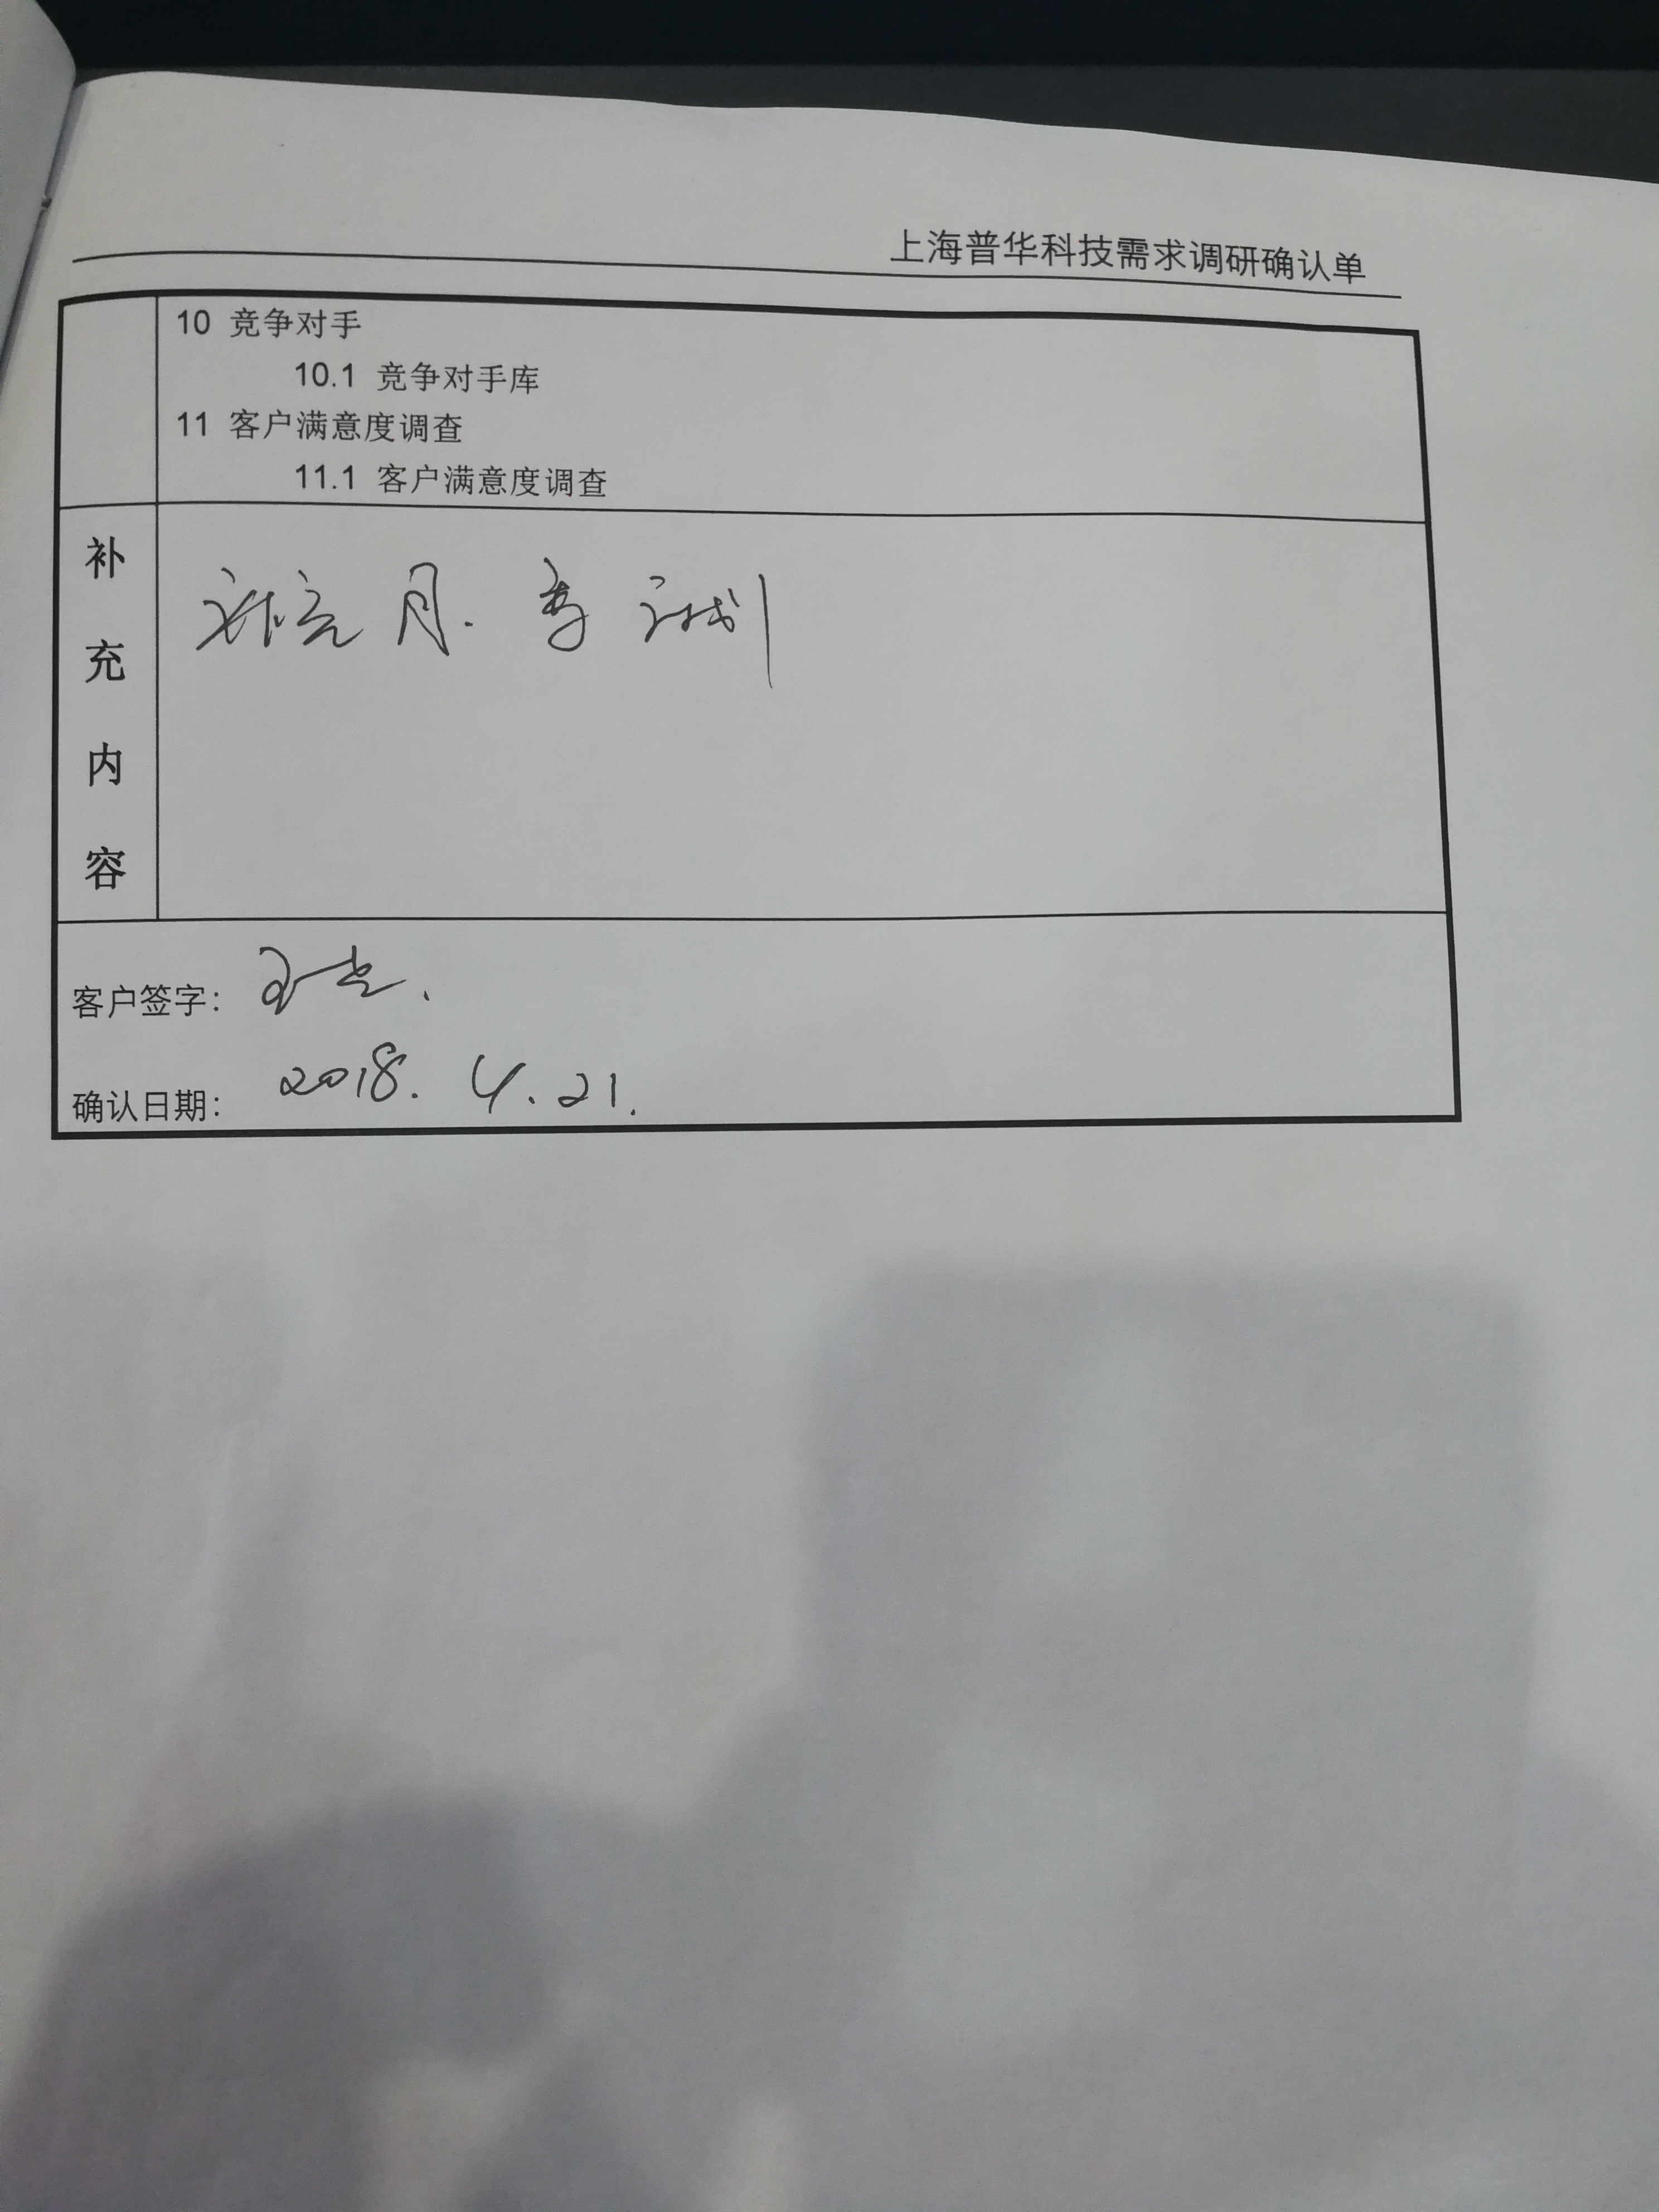 上海普华科技需求调研确认单
10 竞争对手
10.1 竞争对手库
11 客户满意度调查
11.1 客户满意度调查
补充内容
补充月.季计划
客户签字：
确认日期： 2018.4.21.